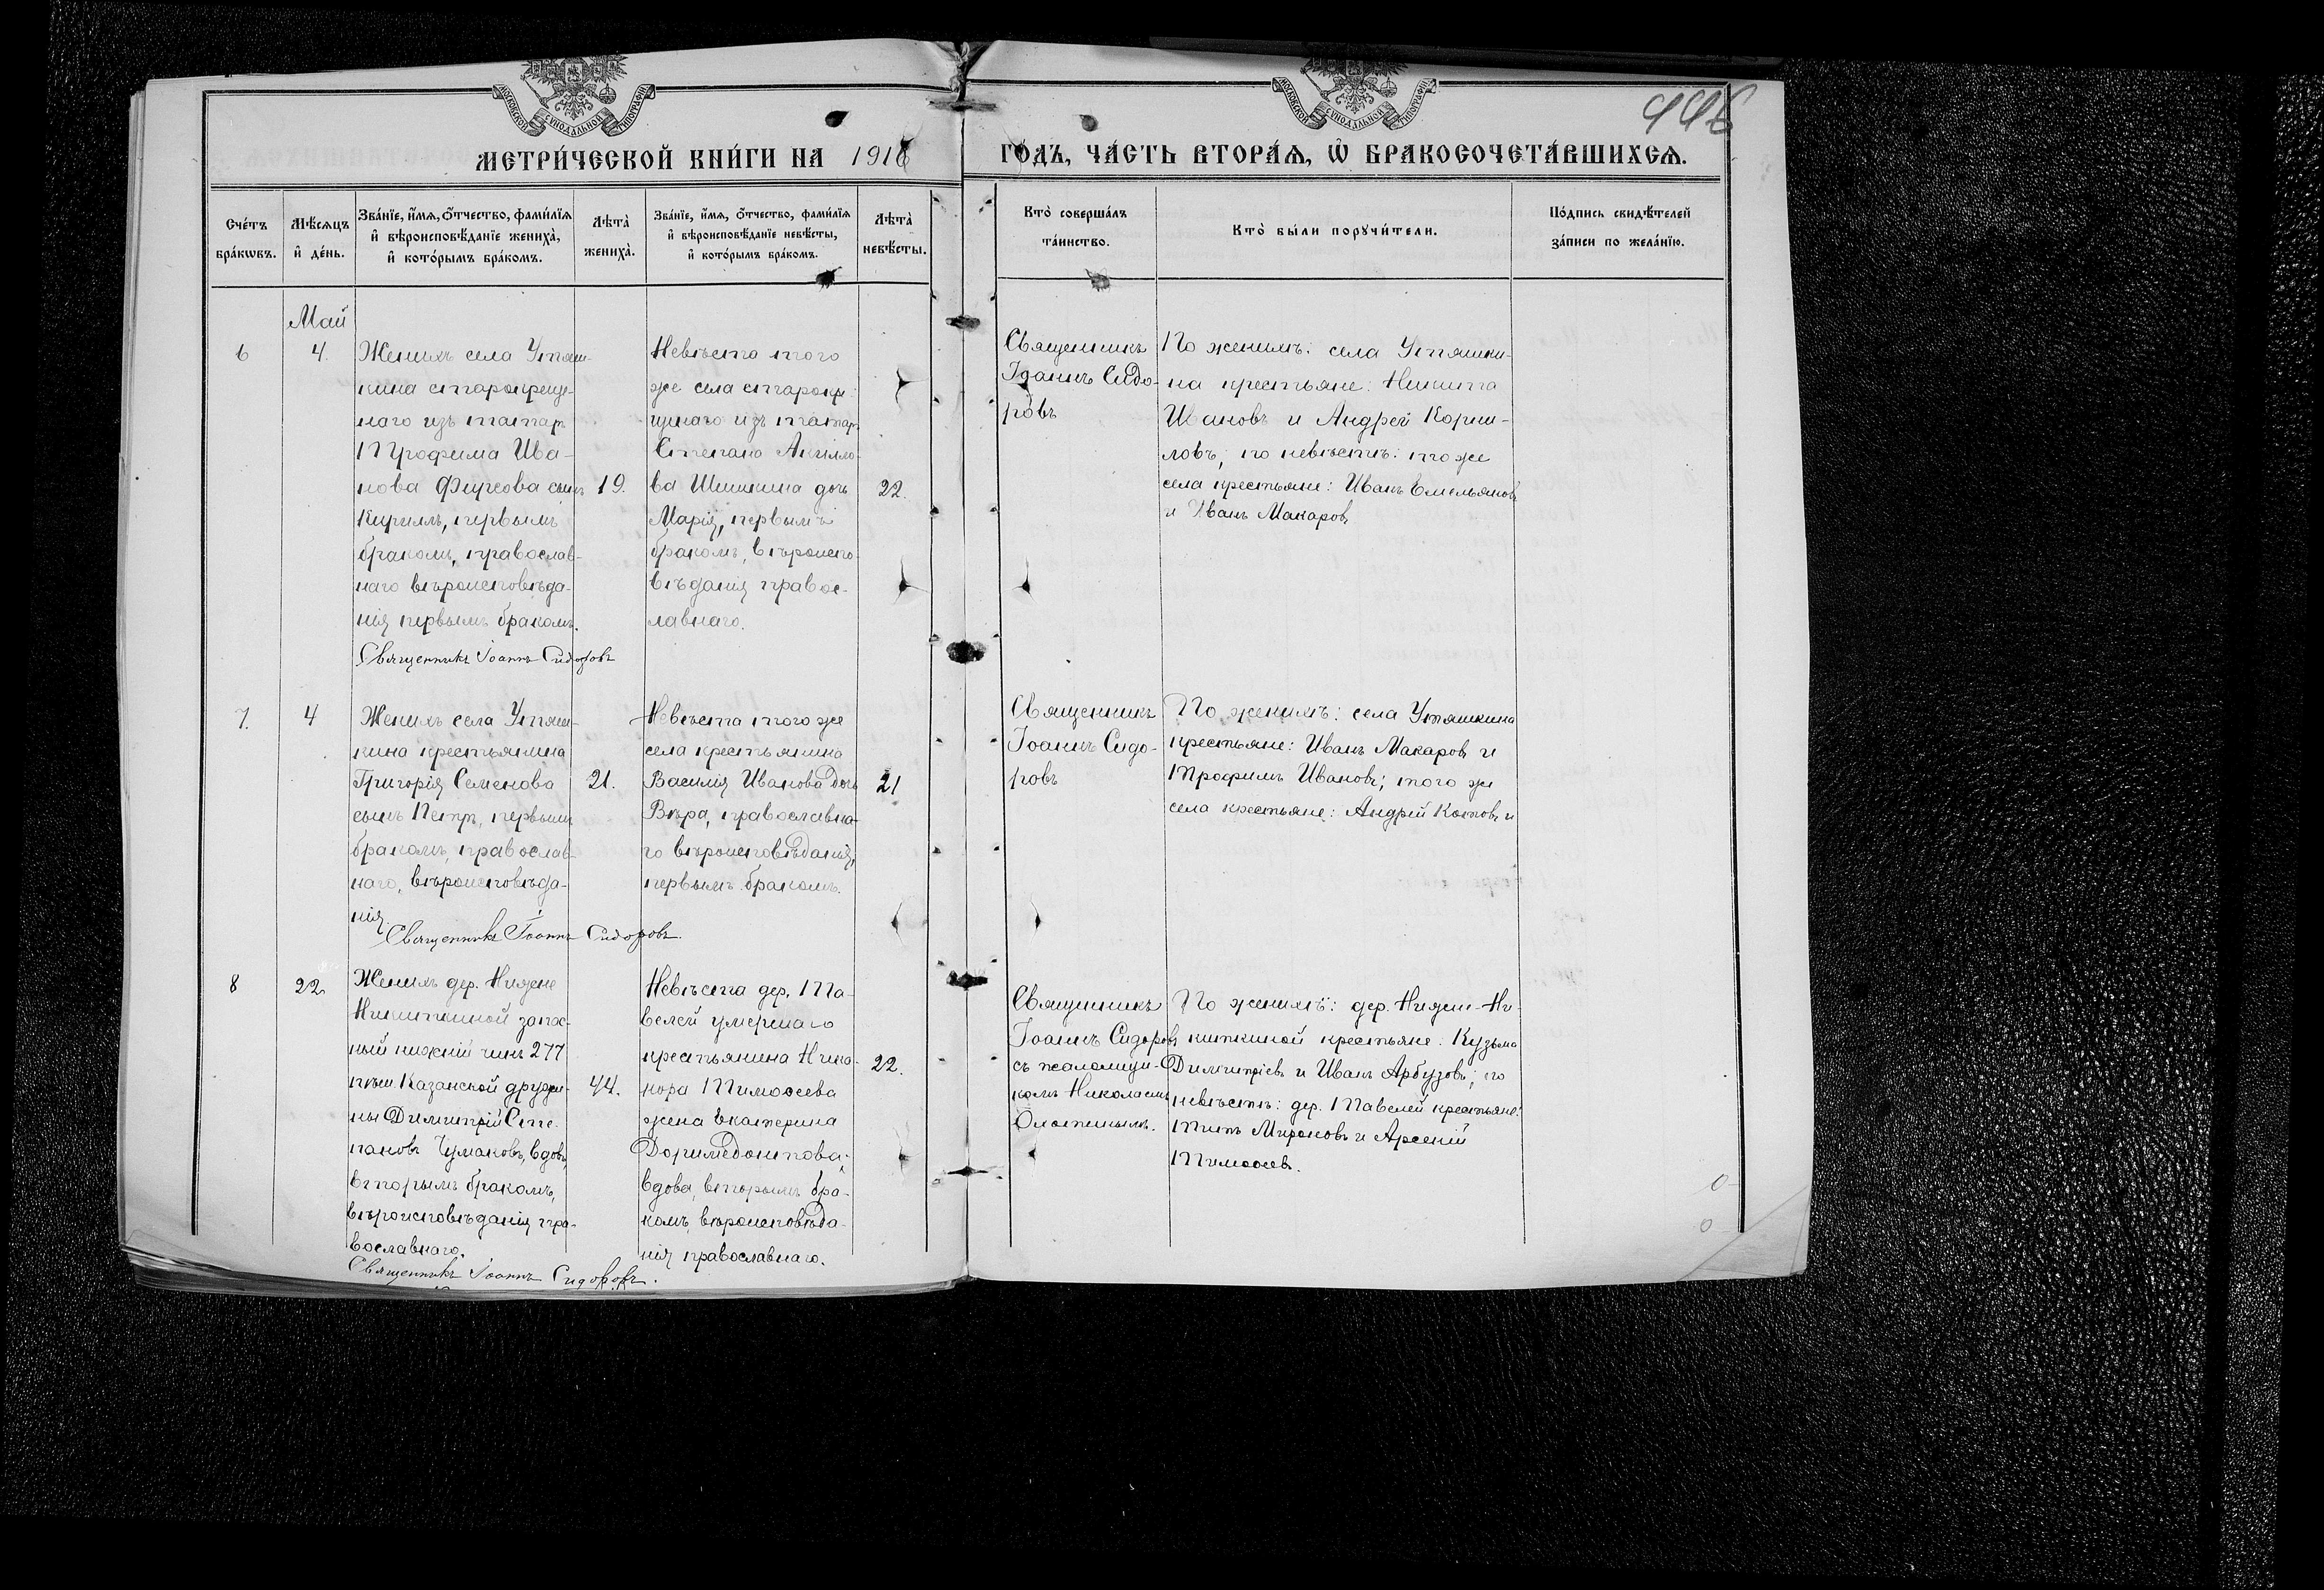 446
МЕТРИ́ЧЕСКОЙ КНИ́ГИ НА 1918 ГО́ДЪ, ЧА́СТЬ ВТОРА́Я, Ѡ БРАКОСОЧЕТА́ВШИХСЯ.
Сче́тъ бра́кѡвъ.
Мѣ́сяцъ и де́нь.
Зва́нїе, и́мя, о́тчество, фами́лїя и вѣроисповѣ́данїе жениха̀, и кото́рымъ бра́комъ.
Лѣта̀ жениха̀.
Зва́нїе, и́мя, о́тчество, фами́лїя и вѣроисповѣ́данїе невѣ́сты, и кото́рымъ бра́комъ.
Лѣта̀ невѣ́сты.
Кто̀ соверша́лъ та́инство.
Кто̀ бы́ли порꙋчи́тели.
По́дпись свидѣ́телей за́писи по жела́нїю.
Май
6
4.
Женихъ села Утяш-
кина старокреще-
наго изъ татар
Трофима Ива-
нова Фугеова сынъ
Кириллъ, первымъ
бракомъ, православ-
наго вѣроисповѣда-
нія первымъ бракомъ.
Священникъ Іоаннъ Сидоровъ
19.
Невѣста того
же села старокр
щенаго изъ татар
Степана
ва Шишкина дочь
Марія, первымъ
бракомъ, вѣроиспо-
вѣданія правос-
лавнаго.
22.
Священникъ
Іоаннъ Сидо-
ровъ
По женихѣ: села Утяшки-
на крестьяне: Никита
Ивановъ и Андрей Корни-
ловъ; по невѣстѣ: того же
села крестьяне: Иванъ Емельянов
и Иванъ Макаровъ
7.
4
Женихъ села Утяш-
кина крестьянина
Григорія Семенова
сынъ Петръ, первымъ
бракомъ, православ-
наго, вѣроисповѣда-
нія.
Священникъ Іоаннъ Сидоровъ.
21.
Невѣста того же
села крестьянина
Василія Иванова дочь
Вѣра, православна-
го вѣроисповѣданія,
первымъ бракомъ.
21
Священникъ
Іоаннъ Сидо-
ровъ
По женихѣ: села Утяшкина
крестьяне: Иванъ Макаровъ и
Трофимъ Ивановъ; того же
села крестьяне: Андрей Котовъ и
8
22
Женихъ дер. Нижне
Никиткиной запас-
ный нижній чинъ 277
пѣш. Казанской дружи-
ны Димитрій Сте-
пановъ Чумаковъ, вдовъ,
вторымъ бракомъ,
вѣроисповѣданія пра-
вославнаго.
Священникъ Іоаннъ Сидоровъ.
44.
Невѣста дер. Та-
велей умершаго
крестьянина Ника-
нора Тимоѳеева
жена Екатерина
Доримедонтова;
вдова, вторымъ бра-
комъ, вѣроисповѣда-
нія православнаго.
22.
Священникъ
Іоаннъ Сидоровъ
съ псаломщи-
комъ Николаемъ
По женихѣ: дер. Нижне-Ни-
киткиной крестьяне: Кузьма
Димитріевъ и Иванъ Арбузовъ; по
невѣстѣ: дер. Тавелей крестьяне:
Титъ Мироновъ и Арсеній
Тимоѳеевъ.